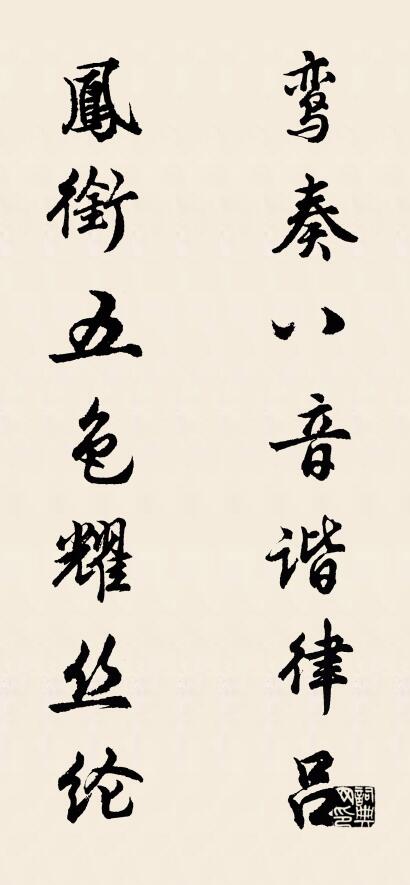 鸾奏八音谐律吕
鳳銜五色耀丝纶